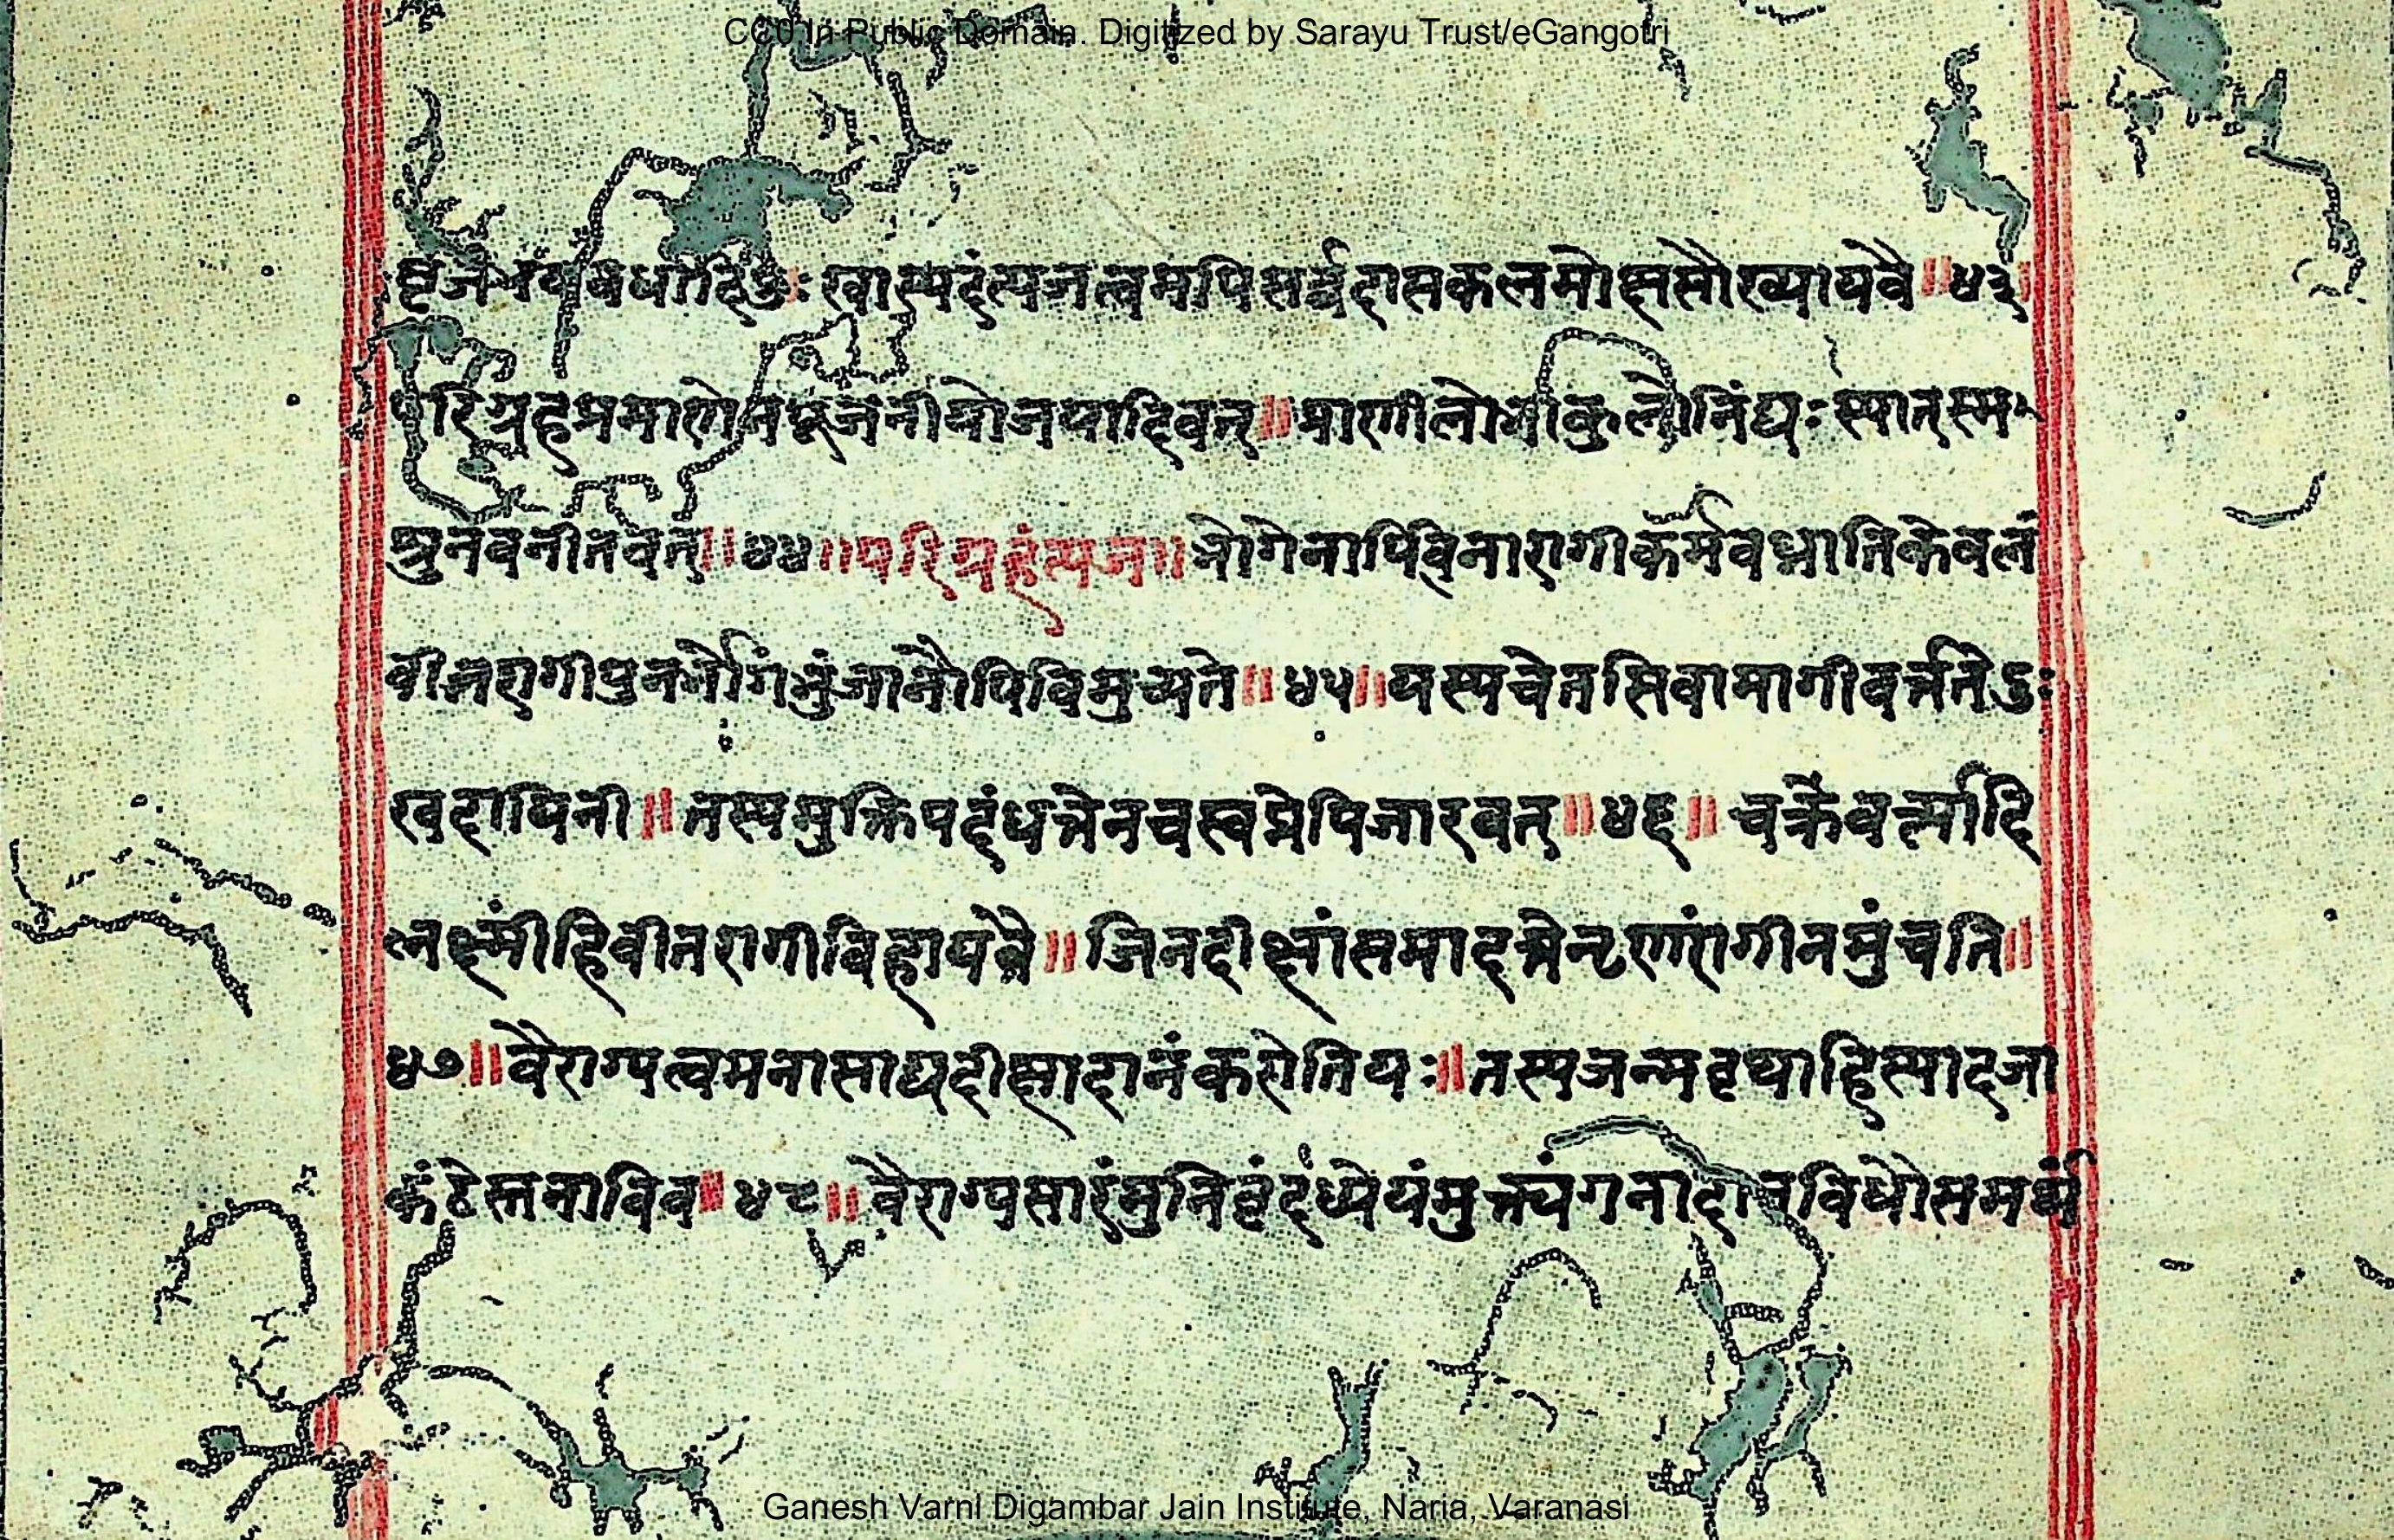 CC0 In Public Domain. Digitized by Sarayu Trust/eGangotri
खास्पदंत्यजत्वमपिसर्वदासकलमोक्षसौख्यायवै॥४३॥
परिग्रहप्रमाणेनपूजनीयोजयादिवत्॥प्राणीलोभीकुलौनिंद्यः स्यात्स्म
श्रुनवनीतवत्॥४४॥परिग्रहंत्यज॥भोगेनापिविनारागीकर्मवध्नातिकेवलं
वीतरागीपुनर्भोगंभुंजानौपिविमुच्यते॥४५॥यस्यचेतसिवामागीवर्त्ततेऽः
खदायिनी॥तस्यमुक्तिपदंधत्तेनचस्वप्नेपिजारवत्॥४६॥चक्रैवर्त्त्यादि
लक्ष्मींहिवीतरागीविहायवै॥जिनदीक्षांसमादत्तेतृणंरागीनमुंचति॥
४७॥वैराग्यत्वमनासाद्यदीक्षादानंकरोतियः॥तस्यजन्मवृथाहिस्यादजा
कंठेस्तनाविव॥४८॥वैराग्यसारंमुनिवृंदध्येयंमुक्त्यंगनादानविधौसमर्थं
Ganesh Varni Digambar Jain Institute, Naria, Varanasi